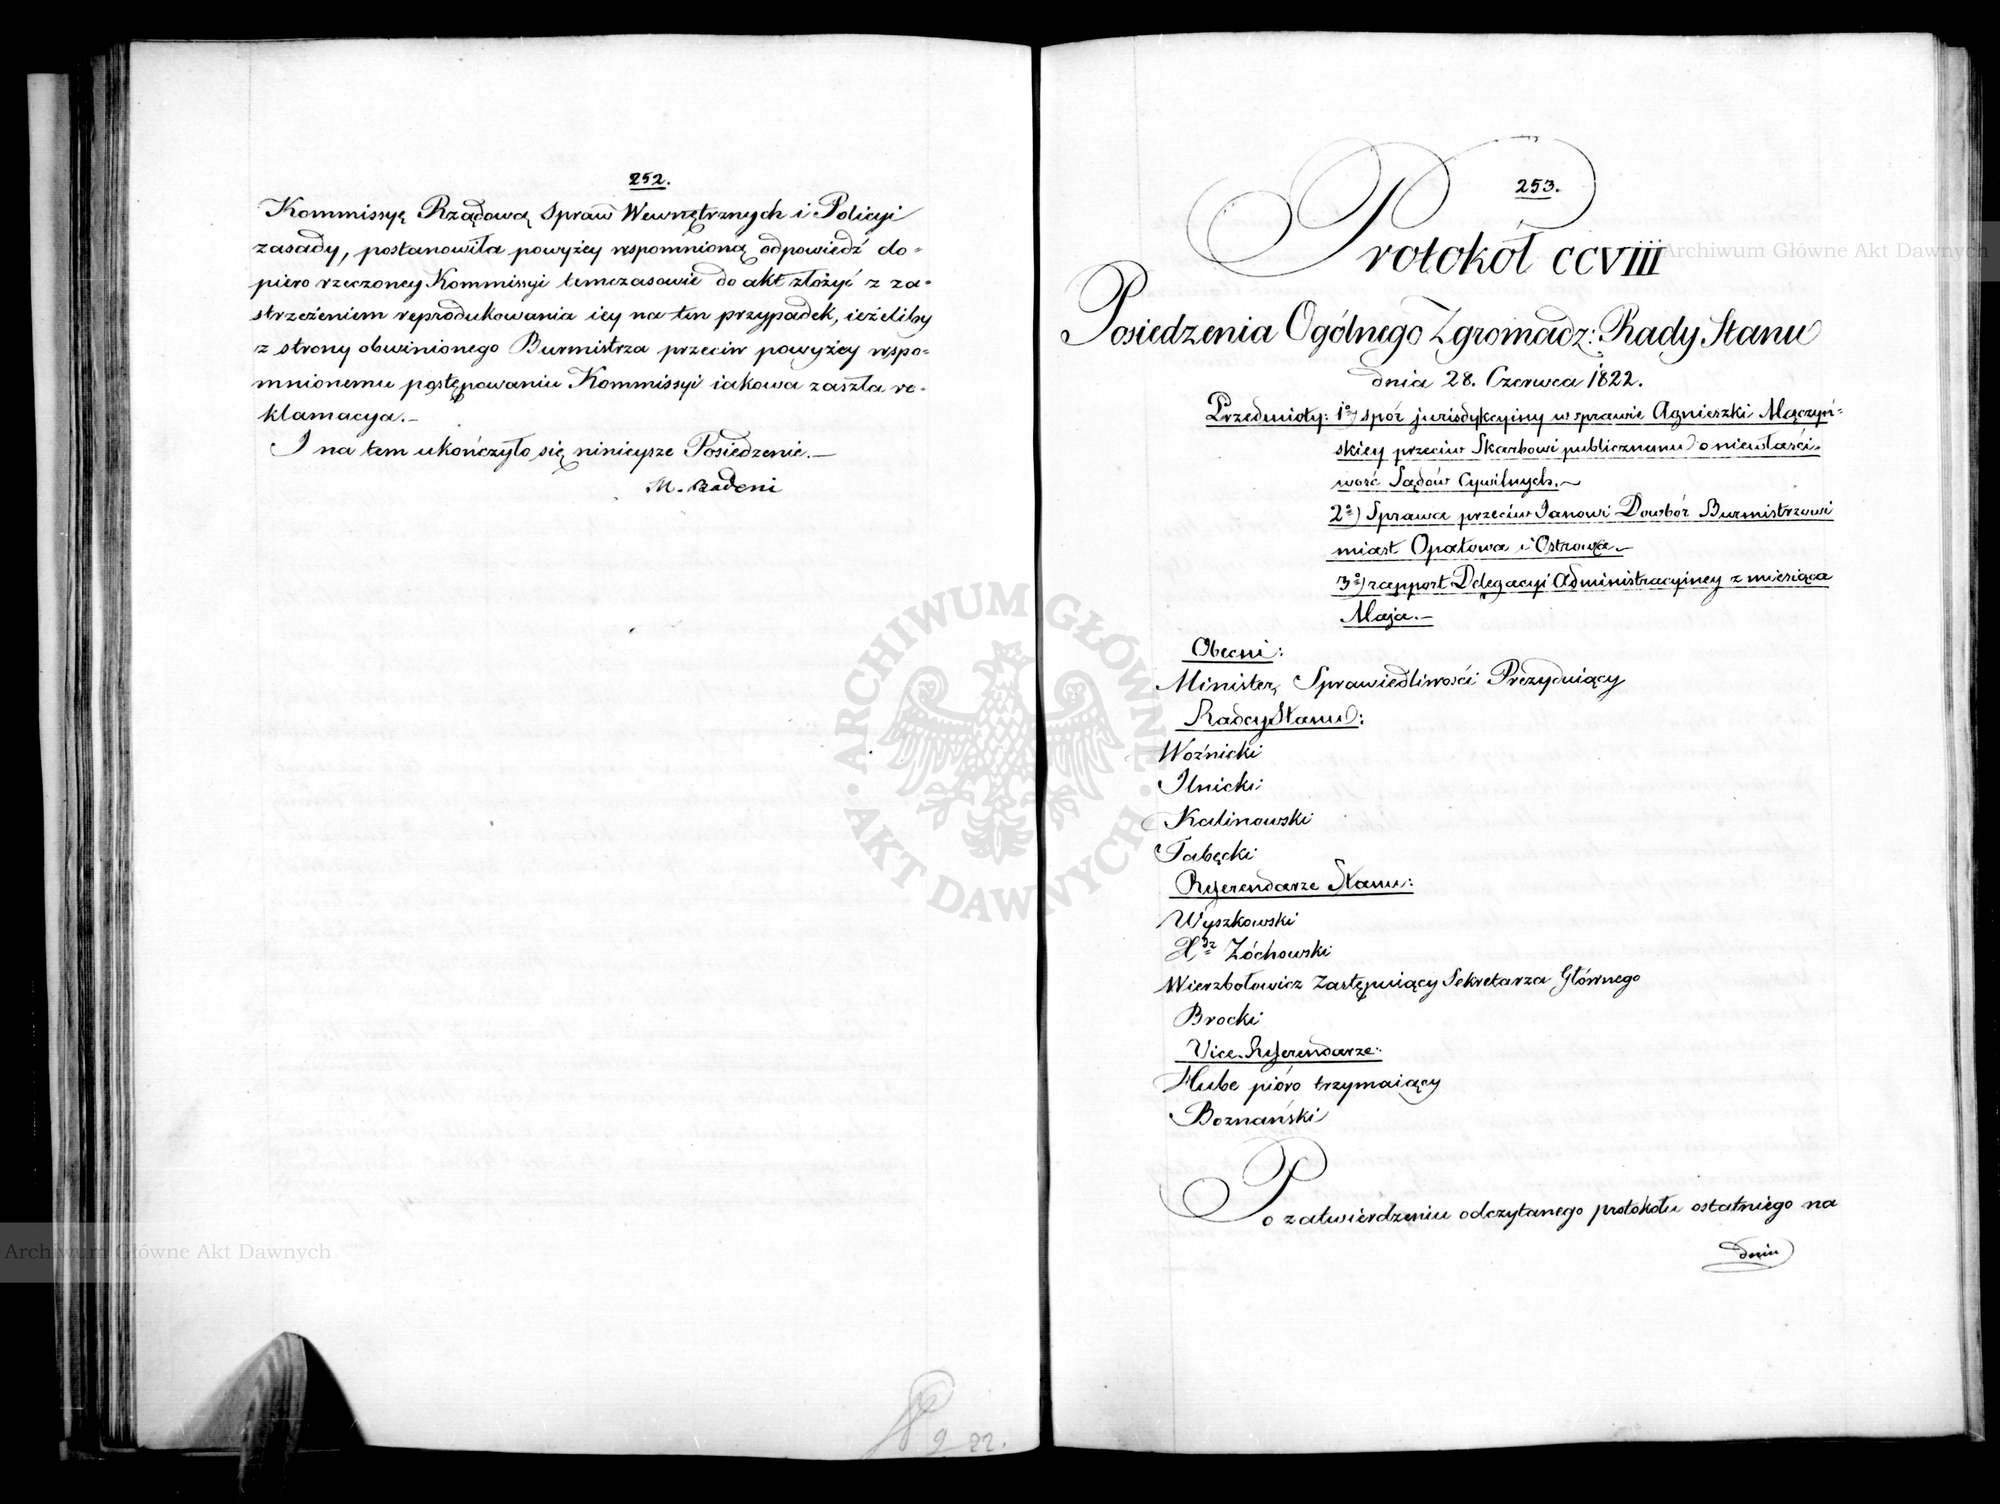 252.
Kommissyę Rządową Spraw Wewnętrznych i Policyi
zasady, postanowiła powyżey wspomnioną odpowiedź do-
piero rzeczoney Kommissyi temczasowie do akt złożyć z za-
strzeżeniem reprodukowania iey na ten przypadek, ieżeliby
z strony obwinionego Burmistrza przeciw powyżey wspo-
mnionemu postępowaniu Kommissyi iakowa zaszła re-
klamacya.-
I na tem ukończyło się ninieysze Posiedzenie.-
M. Badeni
253.
Protokół CCVIII
Posiedzenia Ogólnego Zgromadz: Rady Stanu
dnia 28. Czerwca 1822.
Przedmioty: 1o) spór jurisdykcyiny w sprawie Agnieszki Mączyń-
skiey przeciw Skarbowi publicznemu o niewłaści-
wość Sądów Cywilnych.-
2o) Sprawa przeciw Janowi Dowbór Burmistrzowi
miast Opatowa i Ostrowa.-
3o) rapport Delegacyi Administracyiney z miesiąca
Maja.-
Obecni:
Minister Sprawiedliwości Prezyduiący
Radcy Stanu:
Woźnicki
Ilnicki
Kalinowski
Tabęcki
Referendarze Stanu:
Wyszkowski
Xdz Zóchowski
Wierzbołowicz Zastępuiący Sekretarza Głównego
Brocki
Vice-Referendarze:
Hube pióro trzymaiący
Boznański
Po zatwierdzeniu odczytanego protokołu ostatniego na
dniu
22.
ARCHIWUM GŁÓWNE AKT DAWNYCH
Archiwum Główne Akt Dawnych
Archiwum Główne Akt Dawnych